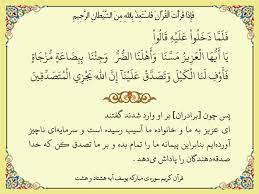 فَإِذَا قَرَأْتَ الْقُرْآنَ فَاسْتَعِذْ بِاللَّهِ مِنَ الشَّيْطَانِ الرَّجِيمِ
فَلَمَّا دَخَلُوا عَلَيْهِ قَالُوا
يَا أَيُّهَا الْعَزِيزُ مَسَّنَا وَأَهْلَنَا الضُّرُّ وَجِئْنَا بِبِضَاعَةٍ مُزْجَاةٍ
فَأَوْفِ لَنَا الْكَيْلَ وَتَصَدَّقْ عَلَيْنَا إِنَّ اللَّهَ يَجْزِي الْمُتَصَدِّقِينَ
پس چون [برادران] بر او وارد شدند گفتند
ای عزیز به ما و خانواده ما آسیب رسیده است و سرمایه‌ای ناچیز
آورده‌ایم بنابراین پیمانه ما را تمام بده و بر ما تصدق کن که خدا
صدقه‌دهندگان را پاداش می‌دهد.
قرآن کریم سوره‌ی مبارکه یوسف آیه هشتاد و هشت